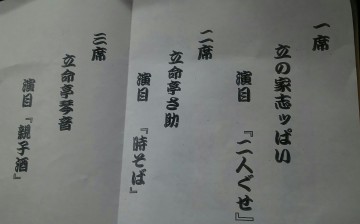 一席
立の家志ッぱい
演目 『二人ぐせ』
二席
立命亭さ助
演目 『時そば』
三席
立命亭琴音
演目 『親子酒』